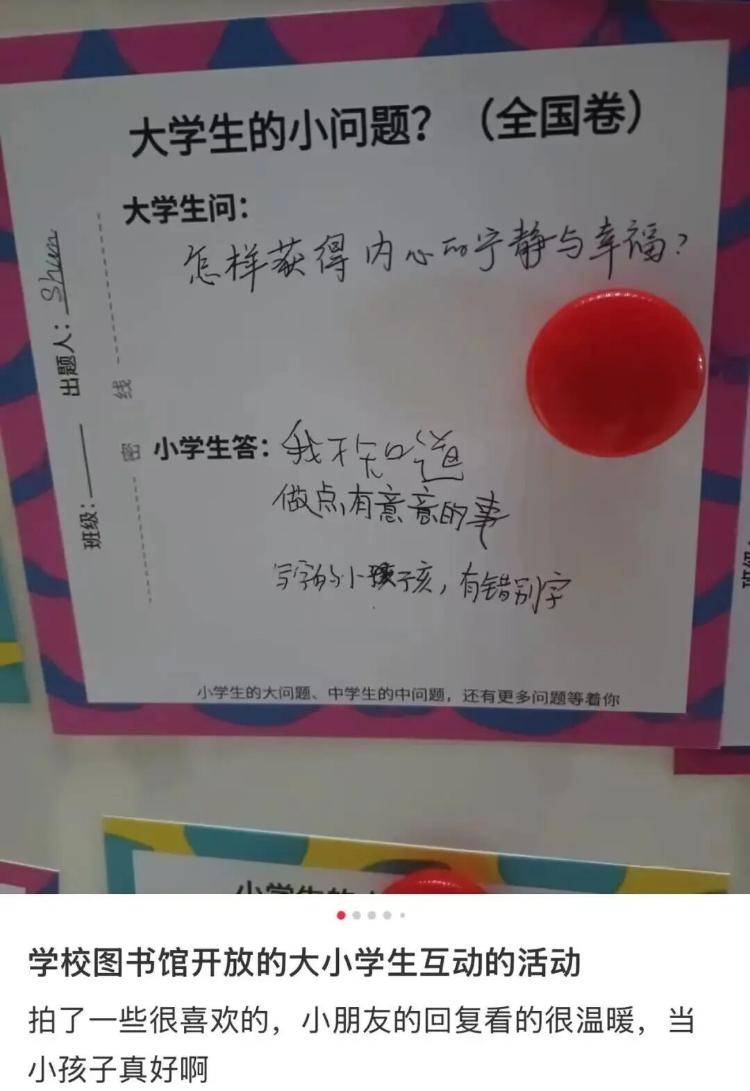 大学生的小问题？（全国卷）
大学生问：
怎样获得内心的宁静与幸福？
出题人：Shum
班级：
线
密
小学生答：
我不知道
做点有意意的事
写字的小孩子孩，有错别字
小学生的大问题、中学生的中问题，还有更多问题等着你
学校图书馆开放的大小学生互动的活动
拍了一些很喜欢的，小朋友的回复看的很温暖，当
小孩子真好啊